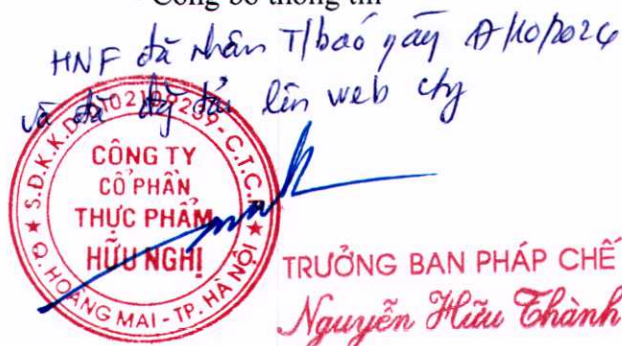 Công bố thông tin
HNF đã nhận T/báo ngày /10/2024
và đã đăng tải lên web cty
S.Đ.K.K.D: 0102109239-C.T.C.P
CÔNG TY
CỔ PHẦN
THỰC PHẨM
HỮU NGHỊ
Q. HOÀNG MAI - TP. HÀ NỘI
TRƯỞNG BAN PHÁP CHẾ
Nguyễn Hữu Thành